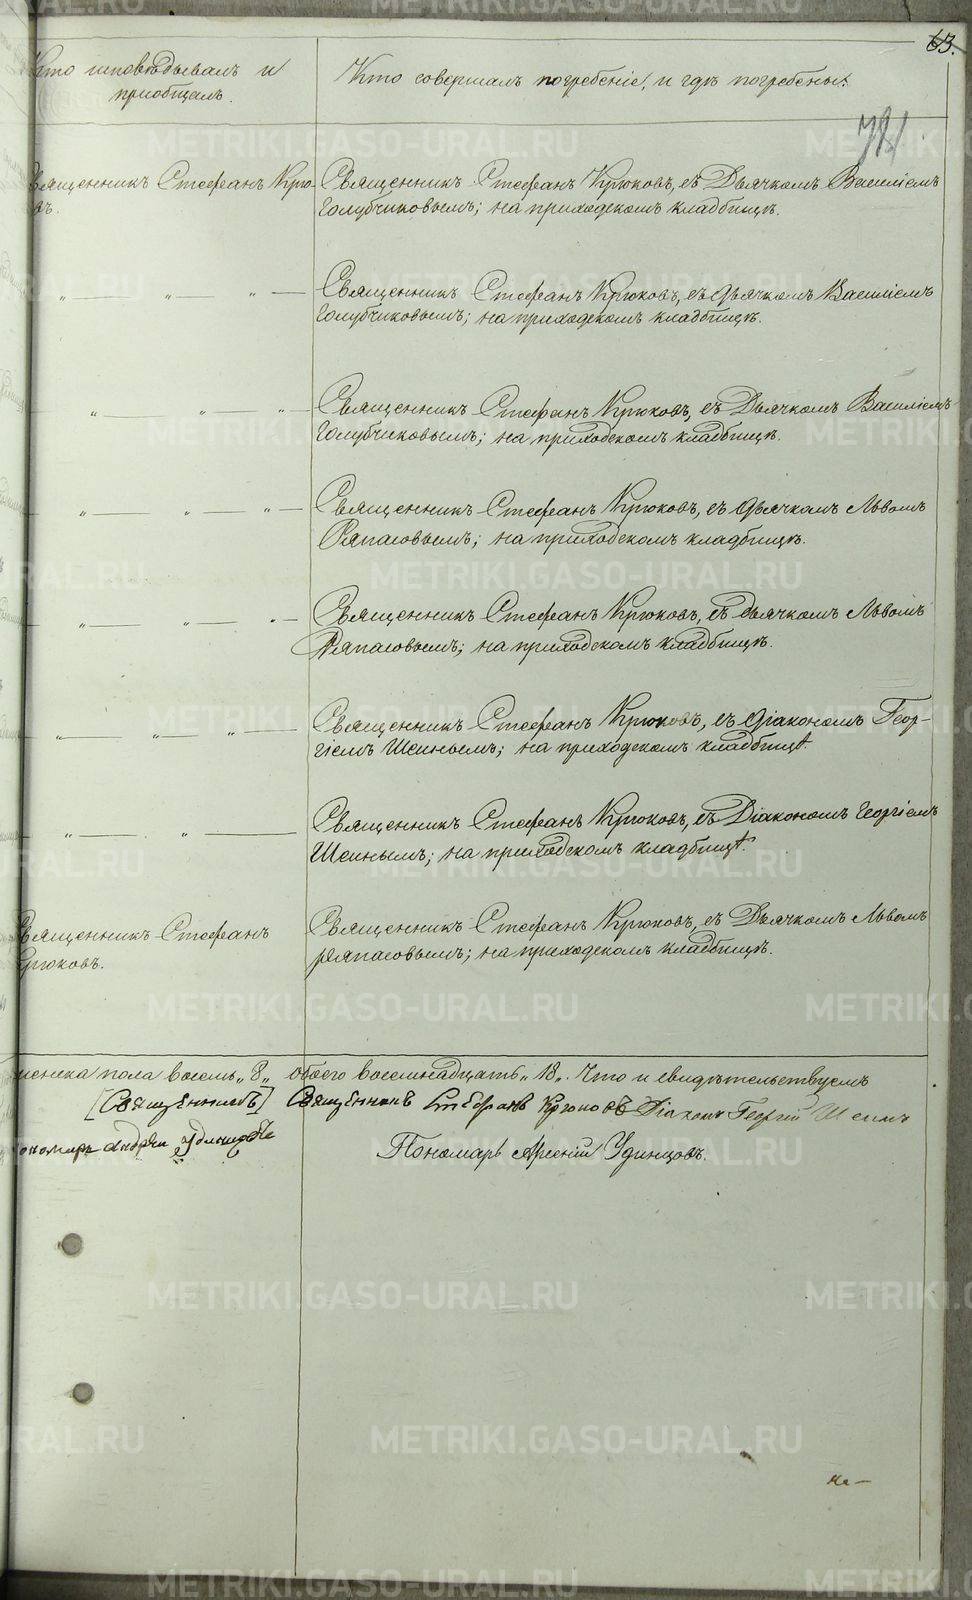 63.
Кто исповѣдывалъ и
пріобщалъ.
Кто совершалъ погребеніе, и гдѣ погребены.
Священникъ Стефанъ Крю-
въ.
Священникъ Стефанъ Крюковъ, съ Дьячкомъ Василіемъ
Голубчиковымъ; на приходскомъ кладбищѣ.
„ — „ — „ —
Священникъ Стефанъ Крюковъ, съ Дьячкомъ Василіемъ
Голубчиковымъ; на приходскомъ кладбищѣ.
„ — „ — „ —
Священникъ Стефанъ Крюковъ, съ Дьячкомъ Василіемъ
Голубчиковымъ; на приходскомъ кладбищѣ.
„ — „ — „ —
Священникъ Стефанъ Крюковъ, съ Дьячкомъ Львомъ
Ряпасовымъ; на приходскомъ кладбищѣ.
„ — „ — „ —
Священникъ Стефанъ Крюковъ, съ Дьячкомъ Львомъ
Ряпасовымъ; на приходскомъ кладбищѣ.
„ — „ — „ —
Священникъ Стефанъ Крюковъ, съ Діакономъ Геор-
гіемъ Шеинымъ; на приходскомъ кладбищѣ.
„ — „ —
Священникъ Стефанъ Крюковъ, съ Діакономъ Георгіемъ
Шеинымъ; на приходскомъ кладбищѣ.
Священникъ Стефанъ
Крюковъ.
Священникъ Стефанъ Крюковъ, съ Дьячкомъ Львомъ
Ряпасовымъ; на приходскомъ кладбищѣ.
женска пола восемь „8„ обоего восемнадцать „18„. Что и свидѣтельствуемъ
[Священникъ] Священникъ Стефанъ Крюковъ Діаконъ Георгій Шеинъ
Пономарь Андрей Удинцовъ
Пономарь Арсеній Удинцовъ.
METRIKI.GASO-URAL.RU